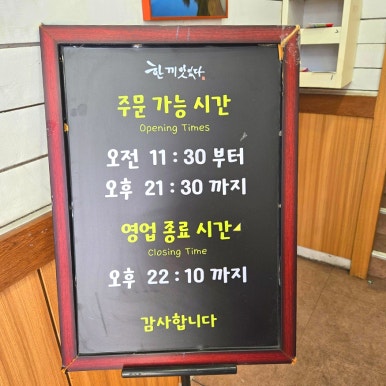 한끼있었다.
주문 가능 시간
Opening Times
오전 11 : 30 부터
오후 21 : 30 까지
영업 종료 시간
Closing Time
오후 22 : 10 까지
감사합니다